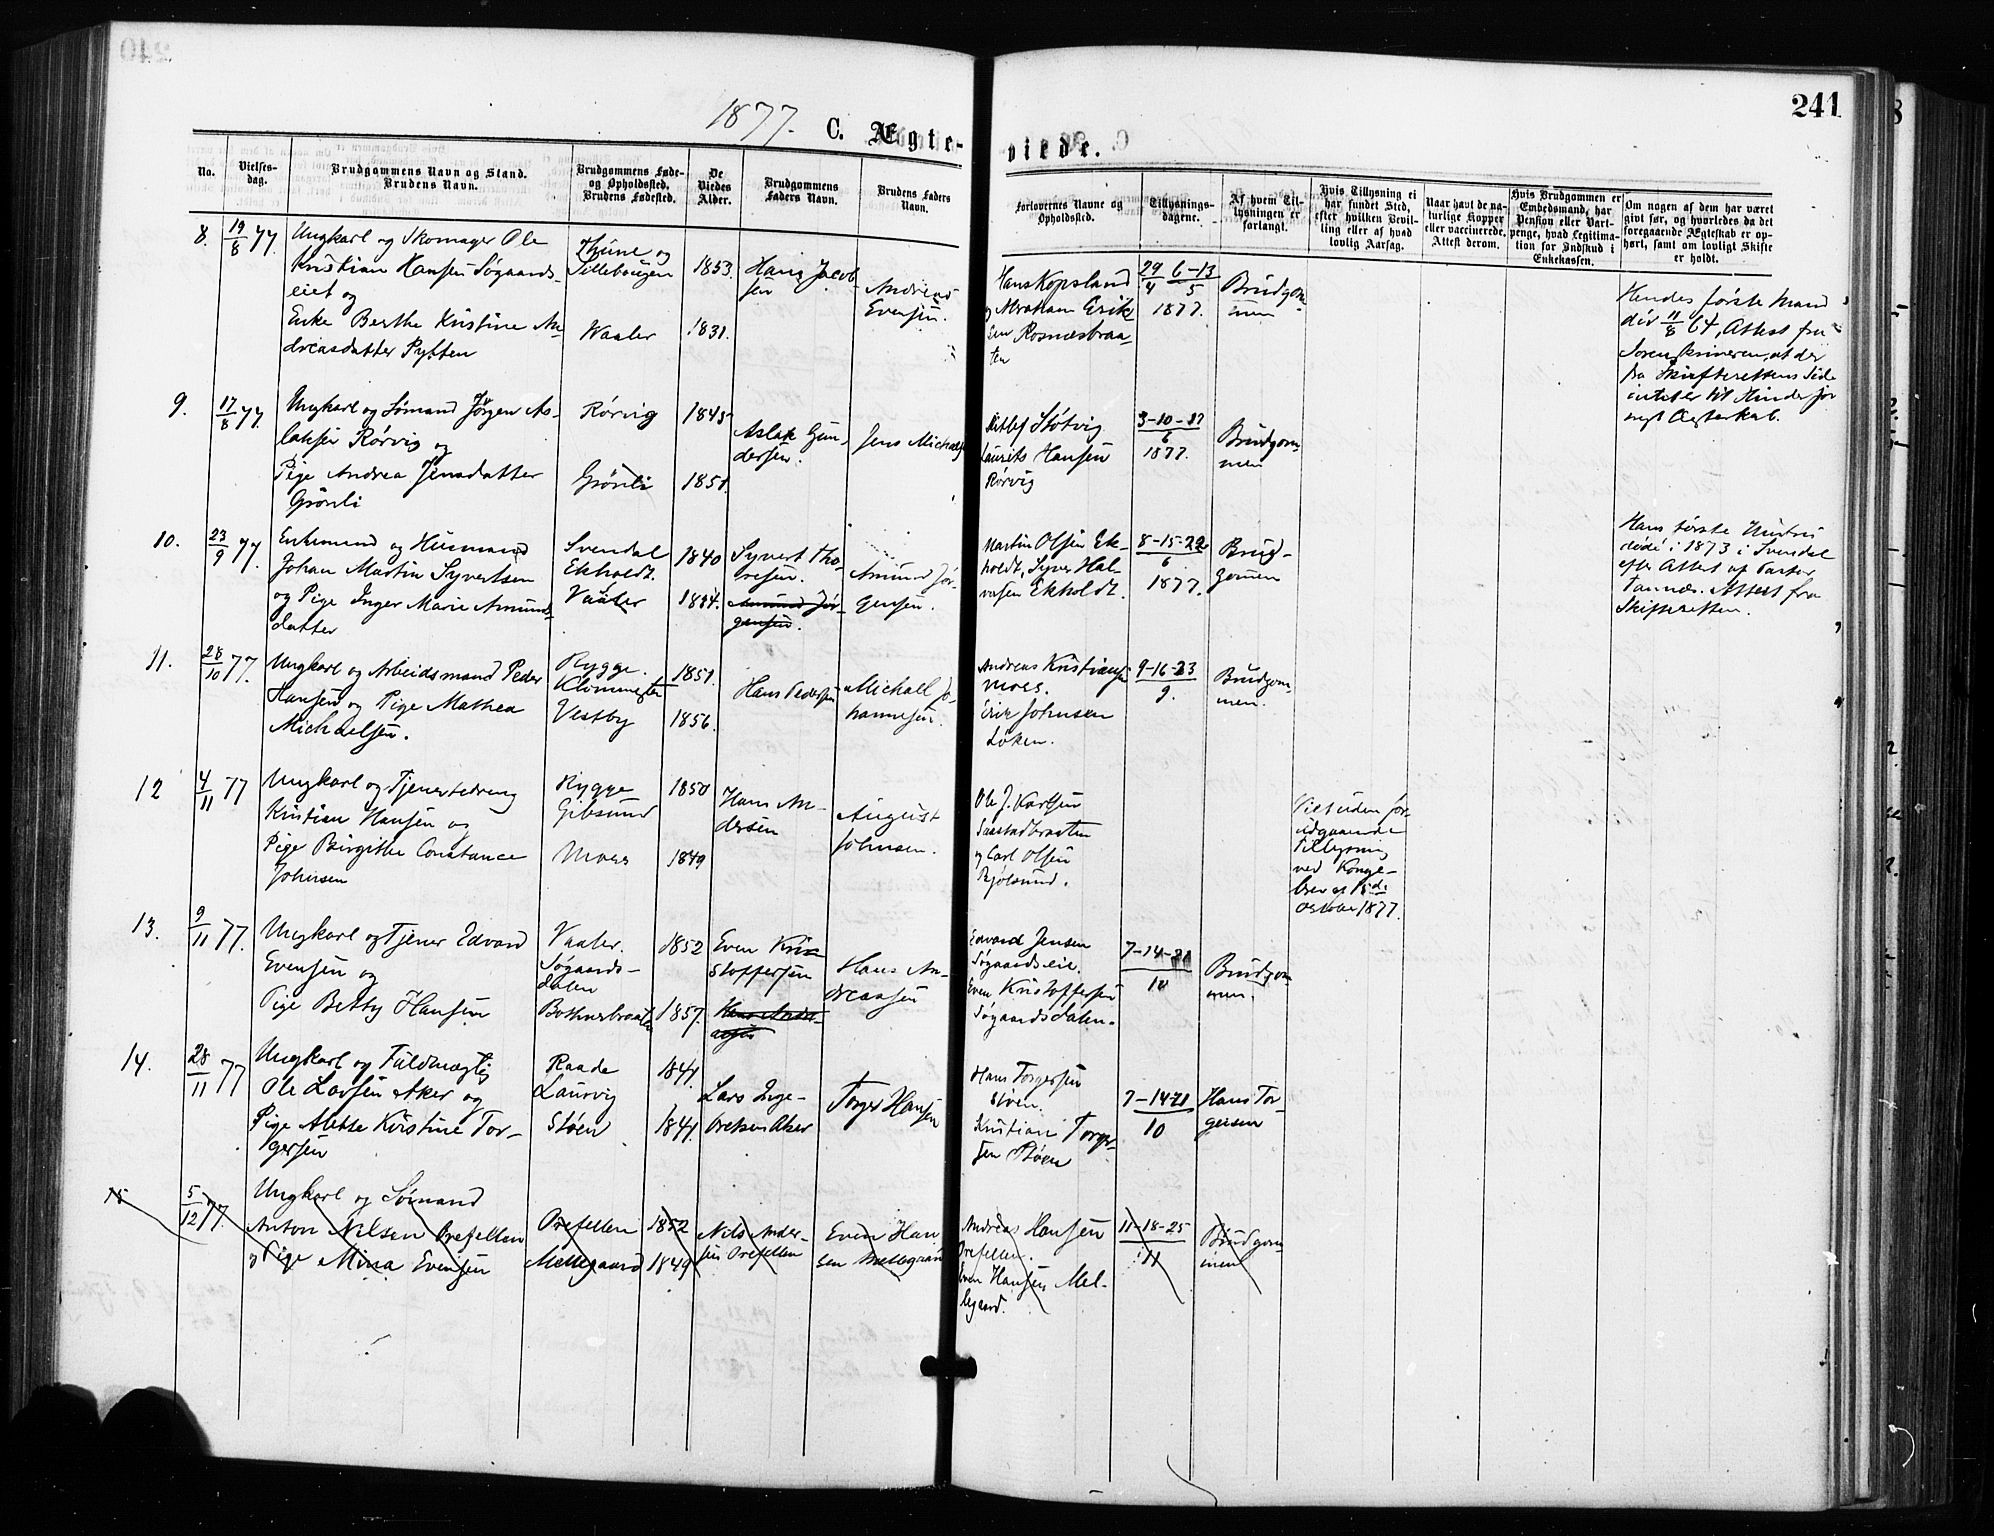 241
1877. C. Ægte-
viede.
No.
Vielses-
dag.
Brudgommens Navn og Stand.
Brudens Navn.
Brudgommens Føde-
og Opholdssted.
Brudens Fødested.
De
Viedes
Alder.
Brudgommens
Faders Navn.
Brudens Faders
Navn.
Forlovernes Navne og
Opholdssted.
Tillysnings-
dagene.
Af hvem Til-
lysningen er
forlangt.
Hvis Tillysning ei
har fundet Sted,
efter hvilken Bevil-
ling eller af hvad
lovlig Aarsag.
Naar havt de na-
turlige Kopper
eller vaccinerede.
Attest derom.
Hvis Brudgommen er
Embedsmand, har
Pension eller Vart-
penge, hvad Legitima-
tion for Indskud i
Enkekassen.
Om nogen af dem har været
givt før, og hvorledes da det
foregaaende Ægteskab er op-
hørt, samt om lovligt Skifte
er holdt.
8.
19/8 77.
Ungkarl og Skomager Ole
Kristian Hansen Søgaards-
eiet og
Enke Berthe Kristine An-
dreasdatter Pytten
Thune og
Sillebaugen
Vaaler
1853.
1831.
Hans Jacob-
sen
Andreas
Evensen.
Hans Kopsland
og Abraham Erik-
sen Rosnæsbraa-
ten
29/4 6-13/5
1877.
Brudgom-
men
Hendes første Mand
død 11/8 67, Attest fra
Sorenskriveren, at der
fra Skifterettens Side
intet er til Hinder for
nyt Ægteskab.
9.
17/8 77.
Ungkarl og Sømand Jørgen As-
laksen Rørvig og
Pige Andrea Jensdatter
Grønli
Rørvig
Grønli
1845
1851.
Aslak Gun-
dersen.
Jens Michaels
Detlef Støtvig
Laurits Hansen
Rørvig
3-10-17
6
1877.
Brudgom-
men
10.
23/9 77.
Enkemand og Husmand
Johan Martin Syvertsen
og Pige Inger Marie Amunds-
datter
Svendal
Ekholdt.
Vaaler
1840
1854.
Syvert Tho-
resen.
Amund Jør-
gensen.
Amund Jør-
gensen.
Martin Olsen Ek-
holdt, Syver Hal-
vorsen Ekholdt.
8-15-22
6
1877.
Brud-
gommen
Hans første Hustru
døde i 1873 i Svendal
efter Attest af Pastor
Tannæs. Attest fra
Skifteretten.
11.
28/10 77.
Ungkarl og Arbeidsmand Peder
Hansen og Pige Mathea
Michaelsen.
Rygge.
Klommesten
Vestby
1851.
1856.
Hans Pedersen
Michall Jo-
hannesen.
Andreas Kristiansen
Moss.
Erik Johnsen
Løken.
9-16-23
9.
Brudgom-
men.
12
4/11 77
Ungkarl og Tjenestedreng
Kristian Hansen og
Pige Birgithe Constance
Johnsen
Rygge
Gibsund
Moss
1850
1849
Hans An-
dersen
August
Johnsen.
Ole J. Karlsen
Saastadbraaten
og Carl Olsen
Kjølsund.
Viet uden for-
udgaaende
Tillysning
ved Konge-
brev af 15de
October 1877.
13.
9/11 77.
Ungkarl og Tjener Edvard
Evensen og
Pige Betty Hansen
Vaaler.
Søgaards-
dalen
Bothnerbraaten
1852
1857.
Even Kris
stoffersen
Hans An-
dreasen
Edvard Jensen
Søgaardseie.
Even Kristoffersen
Søgaardsdalen.
7-14-21
10
Brudgom-
men.
14.
28/11 77
Ungkarl og Fuldmægtig
Ole Larsen Aker og
Pige Alette Kristine Tor-
gersen
Raade
Laurvig
Støen
1841.
1841.
Lars Inge-
bretsen Aker
Torger Hansen
Hans Torgersen
Støen.
Kristian Torger-
sen Støen
7-14-21
10
Hans Tor-
gersen
15
5/12 77.
Ungkarl og Sømand
Anton Nilsen Orefellen
og Pige Mina Evensen
Orefellen
Mellegaard
1852
1849
Nils Ander-
sen Orefellen
Even Han
sen Mellegaard
Andreas Hansen
Orefellen.
Even Hansen Mel-
legaard.
11-18-25
11
Brudgom-
men